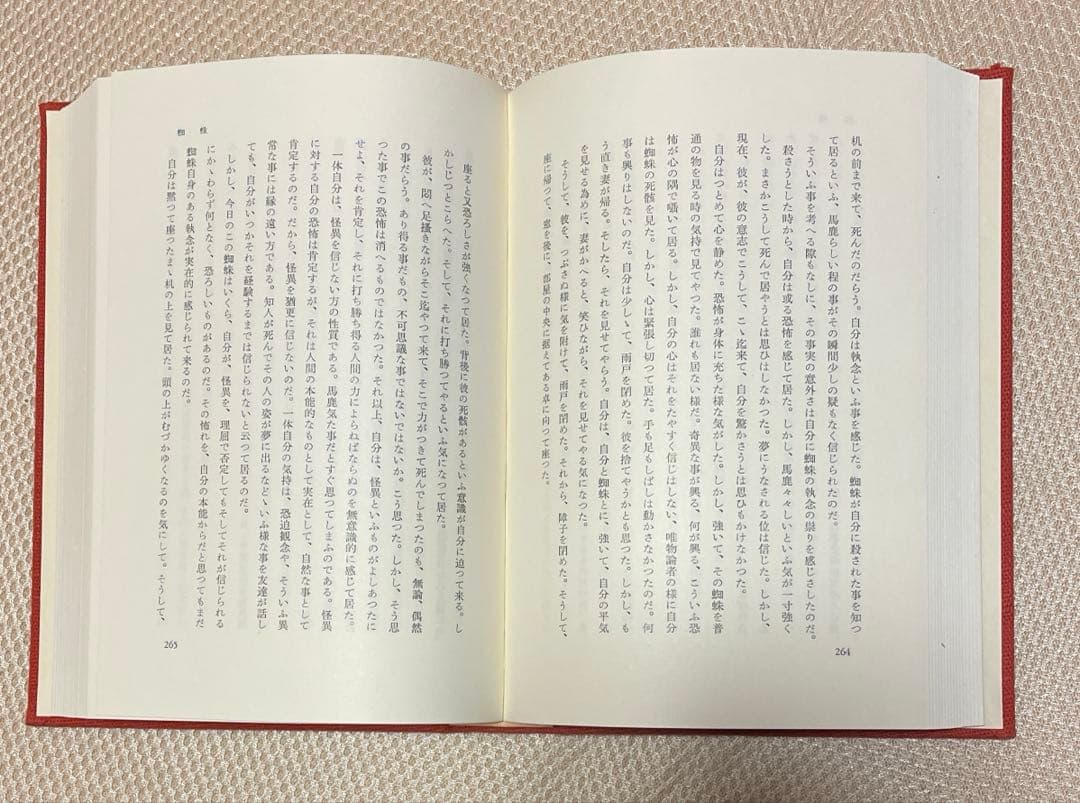 机の前まで来て、死んだのだらう。自分は執念といふ事を感じた。蜘蛛が自分に殺された事を知つ
て居るといふ、馬鹿らしい程の事がその瞬間少しの疑もなく信じられたのだ。
そういふ事を考へる隙もなしに、その事実の意外さは自分に蜘蛛の執念の祟りを感じさしたのだ。
殺さうとした時から、自分は或る恐怖を感じて居た。しかし、馬鹿々々しいといふ気が一寸強く
した。まさかこうして死んで居やうとは思ひはしなかつた。夢にうなされる位は信じた。しかし、
現在、彼が、彼の意志でこうして、こゝ迄来て、自分を驚かさうとは思ひもかけなかつた。
自分はつとめて心を静めた。恐怖が身体に充ちた様な気がした。しかし、強いて、その蜘蛛を普
通の物を見る時の気持で見てやつた。誰れも居ない様だ。奇異な事が興る、何が興る、こういふ恐
怖が心の隅で囁いて居る。しかし、自分の心はそれをたやすく信じはしない、唯物論者の様に自分
は蜘蛛の死骸を見た。しかし、心は緊張し切つて居た。手も足もしばしは動かさなかつたのだ。何
事も興りはしないのだ。自分は少しゝて、雨戸を閉めた。彼を捨てやうかとも思つた。しかし、も
う直き妻が帰る。そしたら、それを見せてやらう。自分は、自分と蜘蛛とに、強いて、自分の平気
を見せる為めに、妻がかへると、笑ひながら、それを見せてやる気になつた。
そうして、彼を、つぶさぬ様に気を附けて、雨戸を閉めた。それから、障子を閉めた。そうして、
座に帰つて、窓を後に、部屋の中央に据えてある卓に向つて座つた。
264
蜘蛛
座ると又恐ろしさが強くなつて居た。背後に彼の死骸があるといふ意識が自分に迫つて来る。し
かしじつとこらへた。そして、それに打ち勝つてやるといふ気になつて居た。
彼が、悶へ足掻きながらそこ迄やつて来て、そこで力がつきて死んでしまつたのも、無論、偶然
の事だらう。あり得る事だもの、不可思議な事ではないではないか。こう思つた。しかし、そう思
つた事でこの恐怖は消へるものではなかつた。それ以上、自分は、怪異といふものがよしあつたに
せよ、それを肯定し、それに打ち勝ち得る人間の力によらねばならぬのを無意識的に感じて居た。
一体自分は、怪異を信じない方の性質である。馬鹿気た事だとすぐ思つてしまふのである。怪異
に対する自分の恐怖は肯定するが、それは人間の本能的なものとして実在として、自然な事として
肯定するのだ。だから、怪異を猶更に信じないのだ。一体自分の気持は、恐迫観念や、そういふ異
常な事には縁の遠い方である。知人が死んでその人の姿が夢に出るなどといふ様な事を友達が話し
ても、自分がいつかそれを経験するまでは信じられないと云つて居るのだ。
しかし、今日のこの蜘蛛はいくら、自分が、怪異を、理屈で否定してもそしてそれが信じられる
にかゝわらず何となく、恐ろしいものがあるのだ。その怖れを、自分の本能からだと思つてもまだ
蜘蛛自身のある執念が実在的に感じられて来るのだ。
自分は黙つて座つたまゝ机の上を見て居た。頭の上がむづかゆくなるのを気にして。そうして、
265